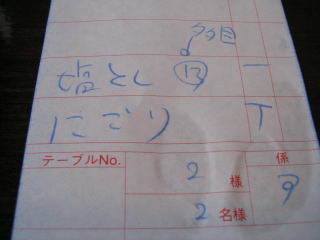 多目
塩とし ⑬ 一
にごり T
テーブルNo. 係
2 様
2 名様